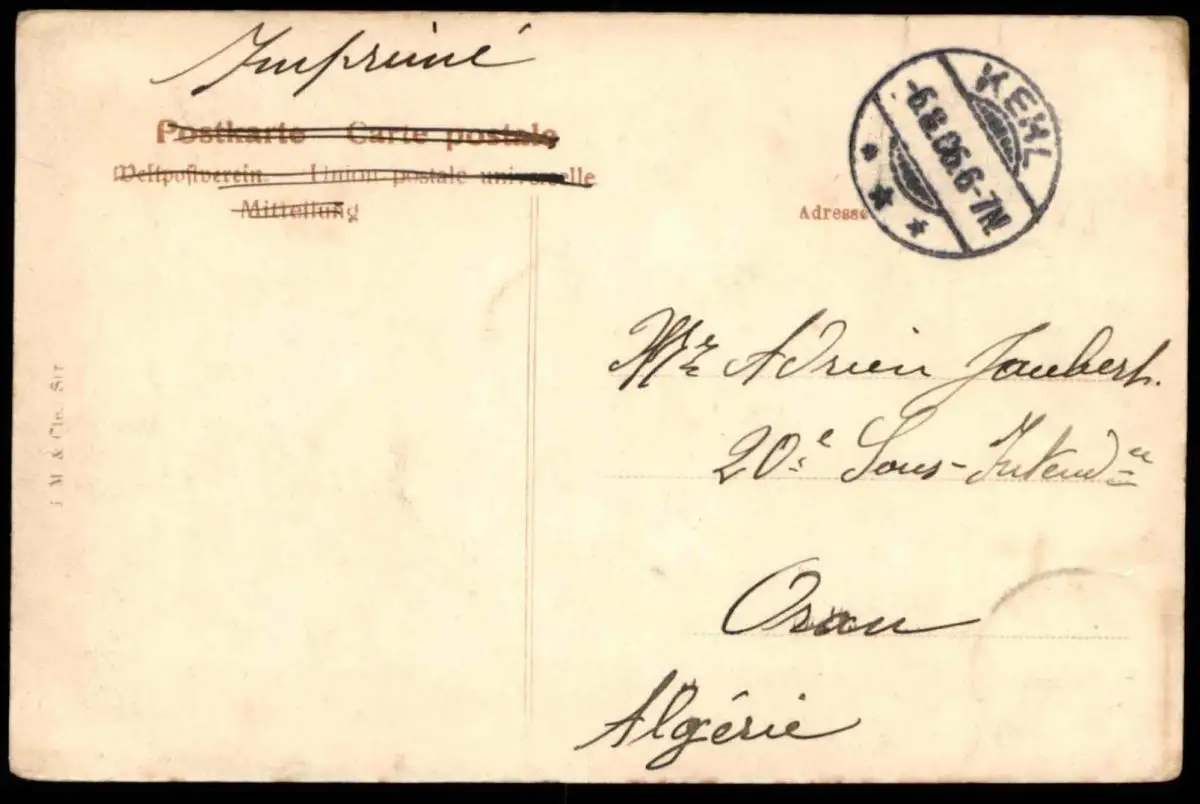 Imprimé
Postkarte Carte postale
Weltpostverein. Union postale universelle
Mitteilung
KEHL
-6.8.06.6-7N.
Adresse
Mr Adrien Joubert.
20e Sous-Intendce
Oran
Algérie
J M & Cie. Str